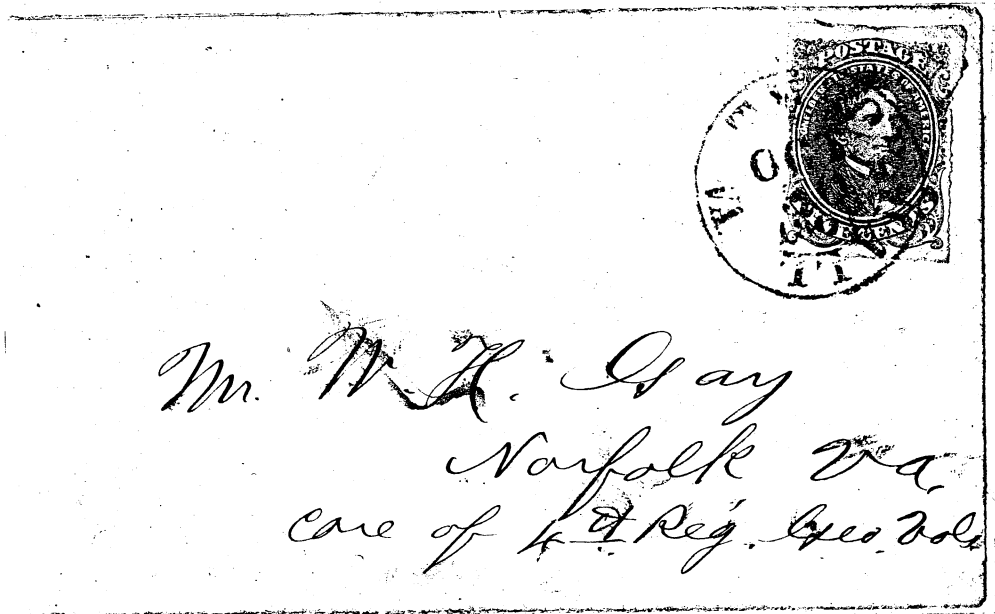 POSTAGE
CONFEDERATE STATES OF AMERICA
FIVE CENTS
OC
VA
Mr. W. H. Gay
Norfolk Va.
care of 4th Reg. Geo. Vols